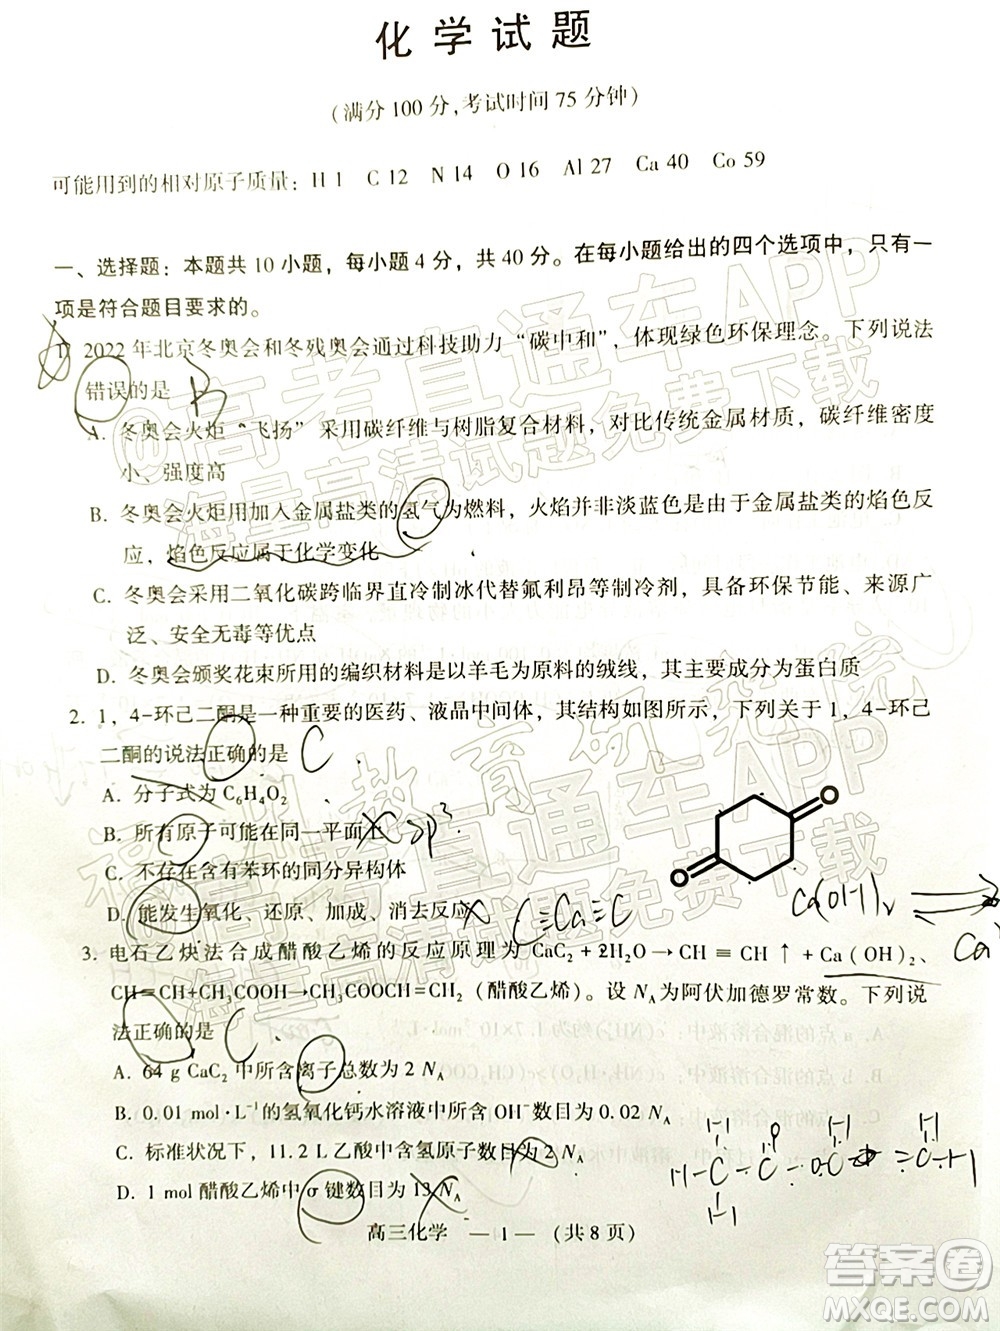 化学试题
(满分 100 分,考试时间 75 分钟)
可能用到的相对原子质量：H 1 C 12 N 14 O 16 Al 27 Ca 40 Co 59
一、选择题：本题共 10 小题，每小题 4 分，共 40 分。在每小题给出的四个选项中，只有一
项是符合题目要求的。
1. 2022 年北京冬奥会和冬残奥会通过科技助力“碳中和”，体现绿色环保理念。下列说法
错误的是 B
A. 冬奥会火炬“飞扬”采用碳纤维与树脂复合材料，对比传统金属材质，碳纤维密度
小、强度高
B. 冬奥会火炬用加入金属盐类的氢气为燃料，火焰并非淡蓝色是由于金属盐类的焰色反
应，焰色反应属于化学变化
C. 冬奥会采用二氧化碳跨临界直冷制冰代替氟利昂等制冷剂，具备环保节能、来源广
泛、安全无毒等优点
D. 冬奥会颁奖花束所用的编织材料是以羊毛为原料的绒线，其主要成分为蛋白质
2. 1，4-环己二酮是一种重要的医药、液晶中间体，其结构如图所示，下列关于 1，4-环己
二酮的说法正确的是 C
A. 分子式为 C₆H₄O₂
B. 所有原子可能在同一平面上 X sp³
C. 不存在含有苯环的同分异构体
D. 能发生氧化、还原、加成、消去反应 X
O
O
C≡Ca≡C
Ca(OH)₂
Ca
3. 电石乙炔法合成醋酸乙烯的反应原理为 CaC₂+2H₂O→CH≡CH↑+Ca(OH)₂、
CH≡CH+CH₃COOH→CH₃COOCH=CH₂（醋酸乙烯）。设 Nᴀ为阿伏加德罗常数。下列说
法正确的是
A. 64 g CaC₂ 中所含离子总数为 2 Nᴀ
B. 0.01 mol·L⁻¹的氢氧化钙水溶液中所含 OH⁻数目为 0.02 Nᴀ
C. 标准状况下，11.2 L 乙酸中含氢原子数目为 2 Nᴀ
D. 1 mol 醋酸乙烯中 σ 键数目为 13 Nᴀ
高三化学 — 1 — (共 8 页)
@高考直通车APP
海量高清试题免费下载
高考直通车APP
海量高清试题免费下载
福州教育研究院
答案圈
MXQE.COM